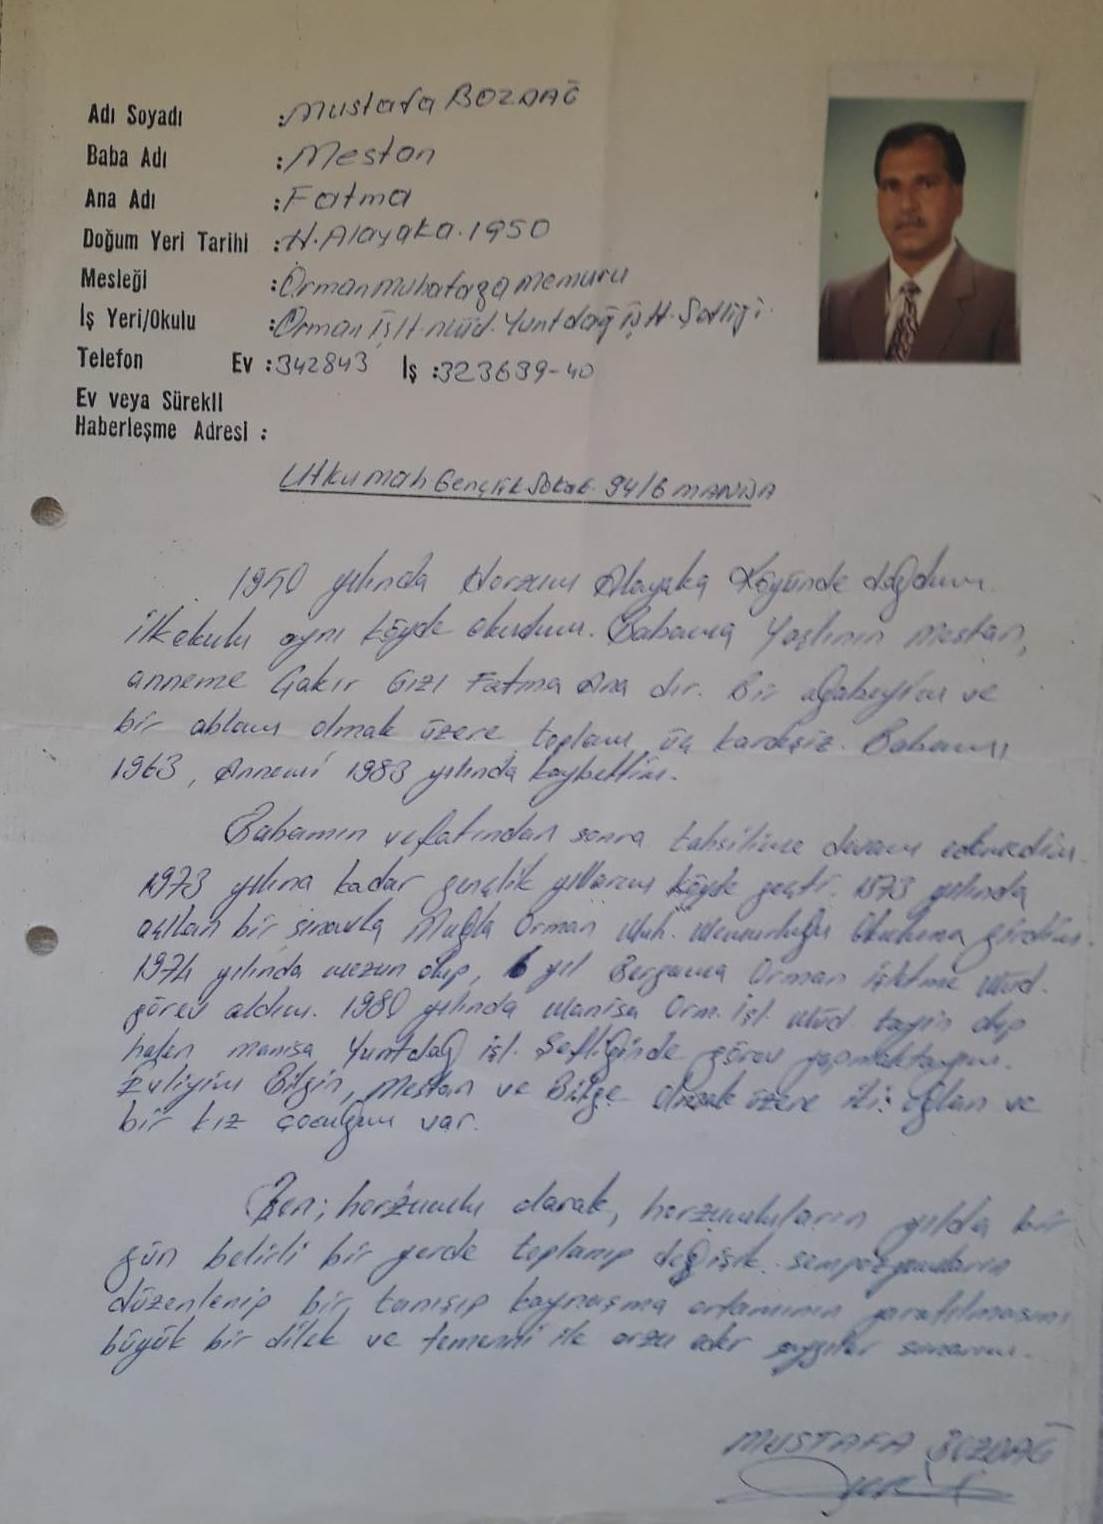 Adı Soyadı :Mustafa BOZDAĞ
Baba Adı :Mestan
Ana Adı :Fatma
Doğum Yeri Tarihi :H.Alayaka.1950
Mesleği :Orman muhafaza memuru
İş Yeri/Okulu :Orman İşlt.müd. Yuntdağ İşlt. Şefliği.
Telefon Ev :342843 İş :323639-40
Ev veya Sürekli
Haberleşme Adresi :
Utku mah Gençlik Sokak 94/6 MANİSA
1950 yılında Horzum Alayaka Köyünde doğdum.
İlkokulu aynı köyde okudum. Babama Yaşlının Mestan,
anneme Çakır Gızı Fatma Ana dır. Bir ağabeyim ve
bir ablam olmak üzere toplam üç kardeşiz. Babamı
1963, Annemi 1983 yılında kaybettim.
Babamın vefatından sonra tahsilime devam edemedim.
1973 yılına kadar gençlik yıllarım köyde geçti. 1973 yılında
açılan bir sınavla Muğla Orman Muh. Memurluğu Okuluna girdim.
1974 yılında mezun olup, 6 yıl Bergama Orman işletme Müd.
görev aldım. 1980 yılında Manisa Orm. İşl. Müd. tayin olup
halen Manisa Yuntdağ işl. Şefliğinde görev yapmaktayım.
Evliyim Bilgin, Mestan ve Bilge olmak üzere iki oğlan ve
bir kız çocuğum var.
Ben; horzumlu olarak, horzumluların yılda bir
gün belirli bir yerde toplanıp değişik sempozyumların
düzenlenip bir, tanışıp kaynaşma ortamının yaratılmasını
büyük bir dilek ve temenni ile arzu eder saygılar sunarım.
MUSTAFA BOZDAĞ